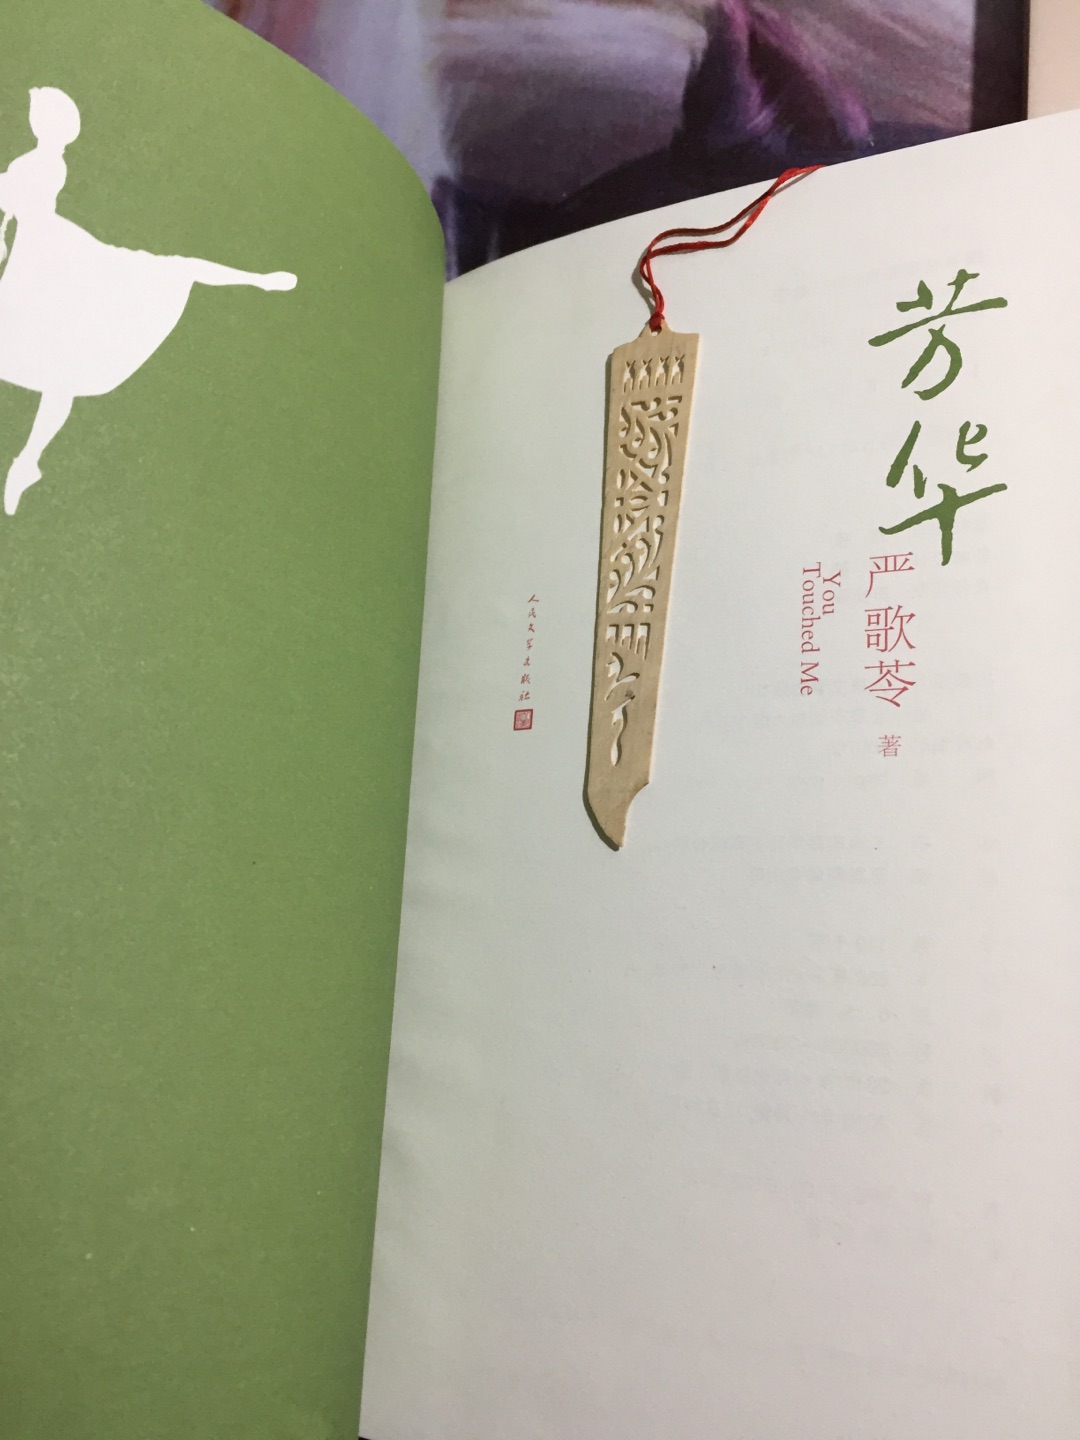 芳华
严歌苓 著
You
Touched Me
人民文学出版社